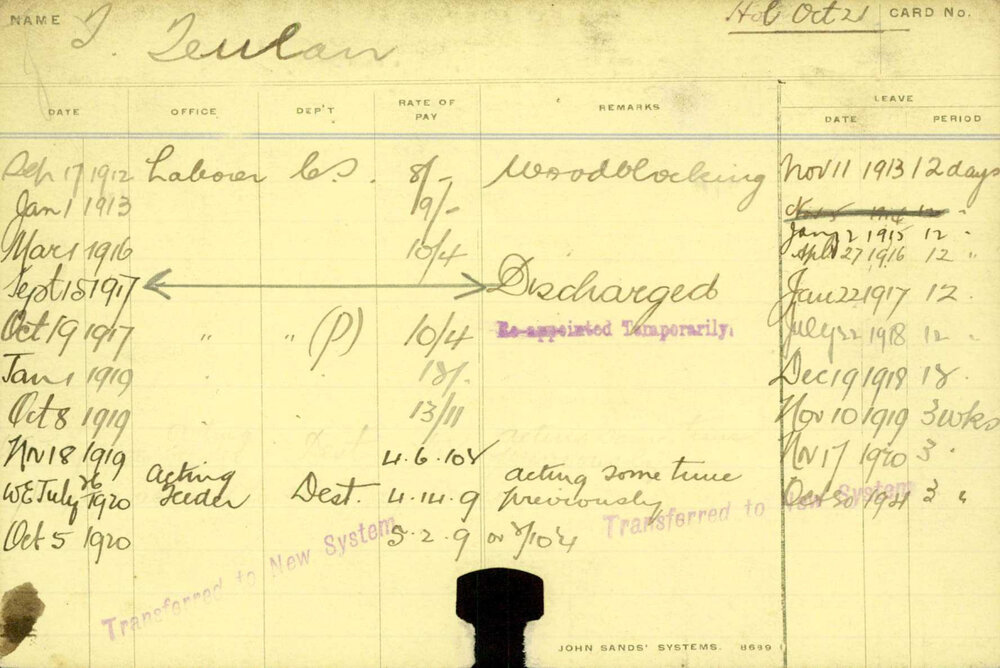 NAME T. Teulan Hol Oct 21 CARD No.
DATE OFFICE DEP'T RATE OF PAY REMARKS LEAVE
DATE PERIOD
Sep 17 1912 Laborer C.S. 8/- Woodblocking Nov 11 1913 12 days
Jan 1 1913 9/-
Jany 2 1915 12 "
Mar 1 1916 10/4 Apl 27 1916 12 "
Sept 15 1917 Discharged Jan 22 1917 12 .
Oct 19 1917 " " (P) 10/4 Re-appointed Temporarily. July 22 1918 12 "
Jan 1 1919 12/- Dec 19 1918 12 .
Oct 8 1919 13/11 Nov 10 1919 3 wks
Nov 18 1919 4.6.10½ Nov 17 1920 3 .
WE July 26 1920 acting feeder Dest. 4.14.9 acting some time previously Oct 30 1921 3 "
Oct 5 1920 5.2.9
Transferred to New System
Transferred to New System
JOHN SANDS' SYSTEMS. 8699